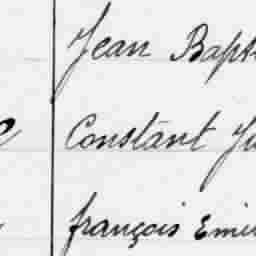 Jean Bapt
Constant Ju
françois Emi